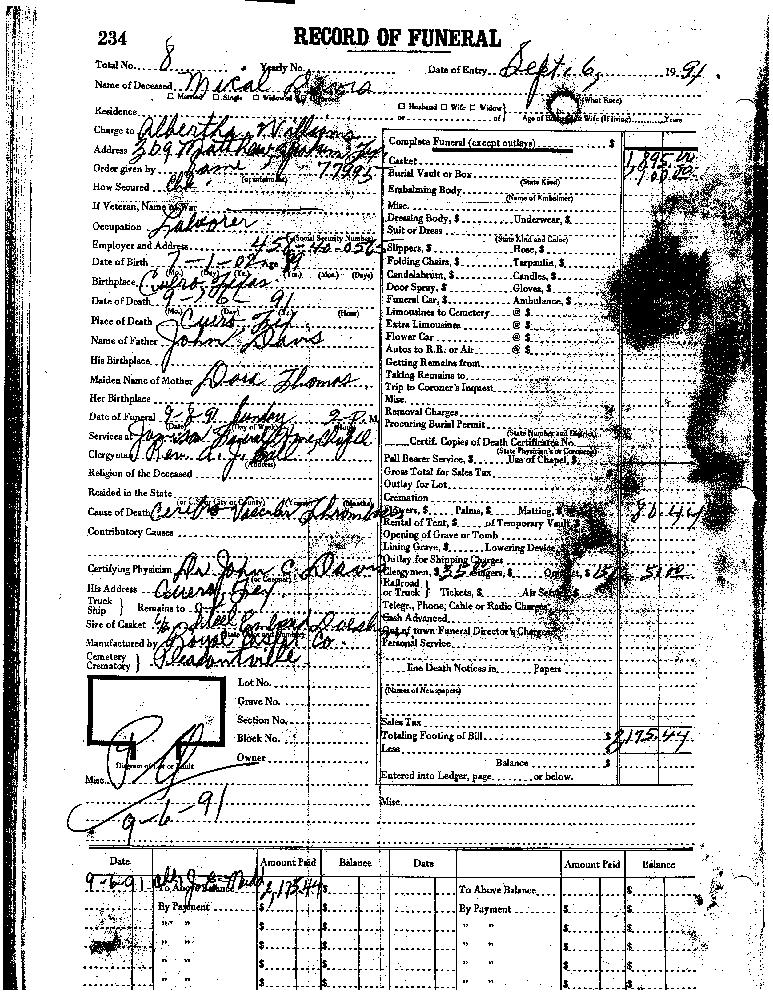 234 RECORD OF FUNERAL
Total No. 8 Yearly No. Date of Entry Sept. 6, 1991
Name of Deceased Mical Davis
□ Married □ Single □ Widowed □ Husband □ Wife □ Widow (What Race)
Residence or of Age of Husband or Wife (If living) Years
Charge to Albertha Williams
Address 309 Matthew 77995
Order given by Same
How Secured
If Veteran, Name of War
Occupation Laborer
Employer and Address (Social Security Number)
Date of Birth 7-1-02 Age 89
(Mo.) (Day) (Yr.) (Yrs.) (Mos.) (Days)
Birthplace Cuero, Texas
Date of Death 91
(Mo.) (Day) (Yr.) (Hour)
Place of Death Cuero, Tex.
Name of Father John Davis
His Birthplace
Maiden Name of Mother Dora Thomas
Her Birthplace
Date of Funeral 9-8-91 Sunday 2-P. M.
(Date) (Day of Week) (Hour)
Services at Funeral Home Chapel
Clergyman Rev. A. J.
(Address)
Religion of the Deceased
Resided in the State
(or U.S., City or County)
Cause of Death Cerebro Vascular
Contributory Causes
Certifying Physician Dr. John C. Davis
(or Coroner)
His Address Cuero, Tex.
Truck Ship } Remains to
Size of Casket Steel
Manufactured by Royal Casket Co.
Cemetery Crematory } Pleasantville
Lot No.
Grave No.
Section No.
Block No.
Owner
Diagram of Lot or Vault
Misc.
9-6-91
Complete Funeral (except outlays) $
Casket 1,895.00
Burial Vault or Box
(State Kind)
Embalming Body
(Name of Embalmer)
Misc.
Dressing Body, $ Underwear, $
Suit or Dress
(State Kind and Color)
Slippers, $ Hose, $
Folding Chairs, $ Tarpaulin, $
Candelabrum, $ Candles, $
Door Spray, $ Gloves, $
Funeral Car, $ Ambulance, $
Limousines to Cemetery @ $
Extra Limousines @ $
Flower Car @ $
Autos to R.R. or Air @ $
Getting Remains from
Taking Remains to
Trip to Coroner's Inquest
Misc.
Removal Charges
Procuring Burial Permit
(State Number and District)
Certif. Copies of Death Certificates No.
(State Physician's or Coroner's)
Pall Bearer Service, $ Use of Chapel, $
Gross Total for Sales Tax
Outlay for Lot
Cremation
Flowers, $ Palms, $ Matting, $ 80.44
Rental of Tent, $ of Temporary Vault, $
Opening of Grave or Tomb
Lining Grave, $ Lowering Device, $
Outlay for Shipping Charges
Clergymen, $ 35 Singers, $ Organist, $ 15
Railroad or Truck } Tickets, $ Air Service, $
Telegr., Phone, Cable or Radio Charges
Cash Advanced
Out of town Funeral Director's Charges
Personal Service
Line Death Notices in Papers
(Names of Newspapers)
Sales Tax
Totaling Footing of Bill $ 2,175.44
Less
Balance $
Entered into Ledger, page or below.
Misc.
Date Amount Paid Balance Date Amount Paid Balance
9-6-91 To Above Balance 2,175.44 $ To Above Balance $
By Payment $ $ By Payment $ $
" " $ $ " " $ $
" " $ $ " " $ $
" " $ $ " " $ $
" " $ $ " " $ $